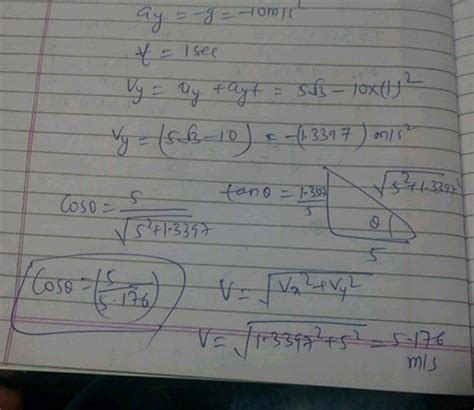 ay = -g = -10m/s²
t = 1sec
Vy = uy + ayt = 5√3 - 10×(1)²
Vy = (5√3-10) = -(1.3397) m/s²
Cosθ = 5/√(5²+1.3397)
tanθ = 1.3397/5
√(5²+1.3397²)
θ
5
Cosθ = (5/5.176)
V = √(Vx²+Vy²)
V = √(1.3397²+5²) = 5.176 m/s